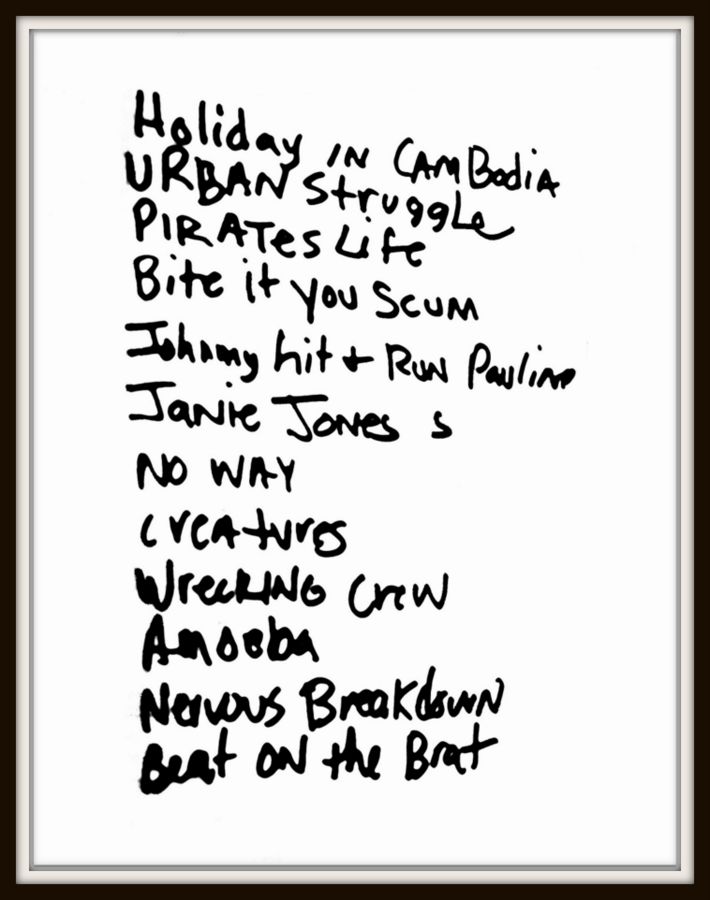 Holiday IN CAMBodiA
URBAN Struggle
PIRATes Life
Bite it you Scum
Johnny hit + RUN Pauline
Janie Jones s
NO WAY
CreAtures
WreckING Crew
Amoeba
Nervous Breakdown
Beat ON the Brat